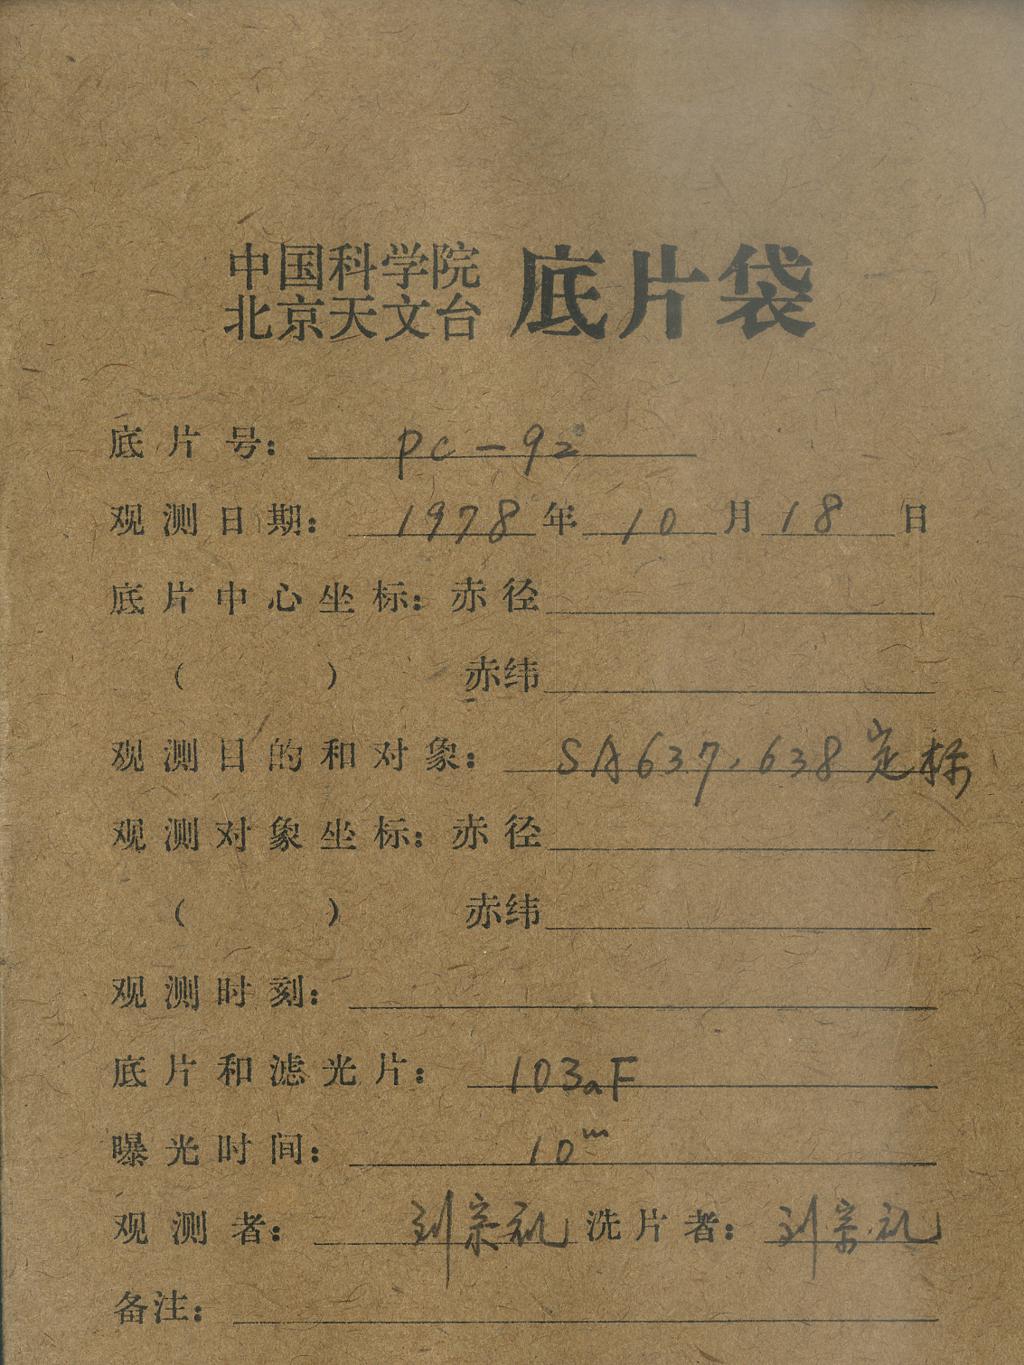 中国科学院
北京天文台 底片袋
底片号: PC-92
观测日期: 1978年10月18日
底片中心坐标: 赤径
( ) 赤纬
观测目的和对象: SA637, 638定标
观测对象坐标: 赤径
( ) 赤纬
观测时刻:
底片和滤光片: 103aF
曝光时间: 10ᵐ
观测者: 刘宗礼 洗片者: 刘宗礼
备注: